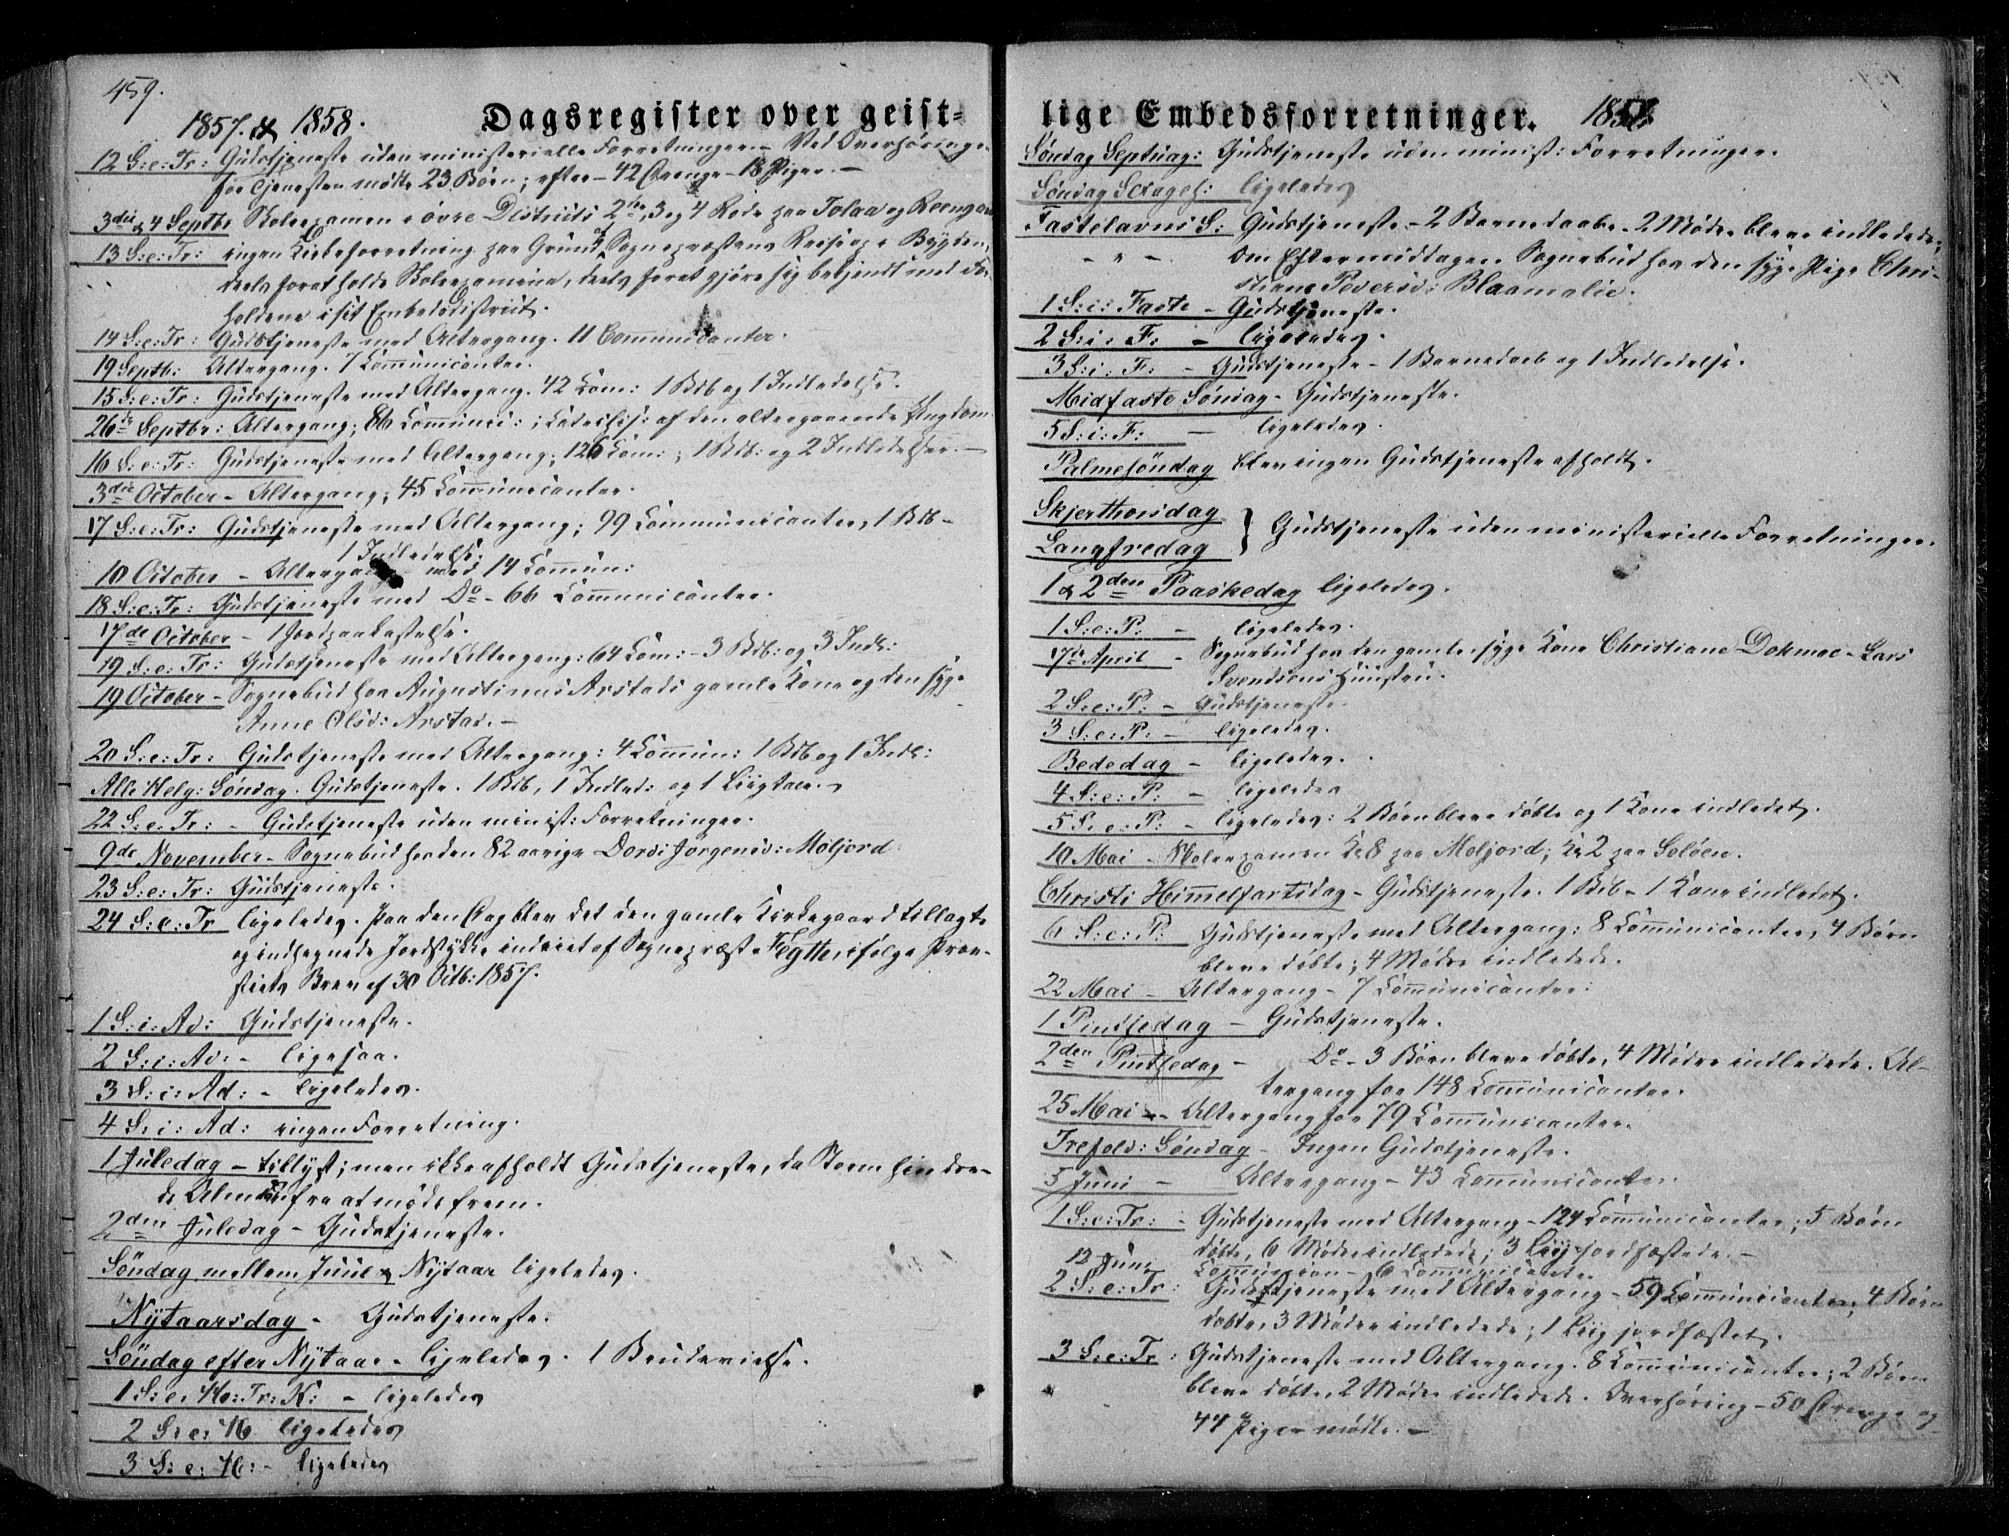 459.
1857. & 1858. Dagsregister over geist-
12 S: e: Tr: Gudstjeneste uden ministerielle Forretninger. - Ved Overhøringe
før Tjenesten mødte 23 Børn; efter - 42 Drenge - 18 Piger. -
3die & 4 Septbr Skoleexamen i øvre Districts 2den, 3 og 4 Rode paa Tolaa og
13 S: e: Tr: ingen Kirkeforretning paa Grund af Sognepræstens Reise op i Bygden,
deels for at holde Skoleexamina, deels for at gjøre sig bekjendt med For-
holdene i sit Embedsdistrict.
14 S: e: Tr: Gudstjeneste med Altergang. 11 Communicanter.
19 Septb: Altergang. 7 Communicanter.
15 S: e: Tr: Gudstjeneste med Altergang. 42 Com: 1 Bdb og 1 Indledelse.
26de Septbr: Altergang; 86 Communic: ; Catechis: af den altergaaende Ungdom.
16 S: e: Tr: Gudstjeneste med Altergang; 126 Com: ; 1 Bdb: og 2 Indledelser. -
3die October - Altergang; 45 Communicanter.
17 S: e: Tr: Gudstjeneste med Altergang; 99 Communicanter, 1 Bdb -
1 Indledelse.
10 October - Altergang med 14 Commun:
18 S: e: Tr: Gudstjeneste med Do - 66 Communicanter.
17de October - 1 Jordpaakastelse.
19 S: e: Tr: Gudstjeneste med Altergang: 64 Com: - 3 Bdb: og 3 Indl:
19 October - Sognebud hos Augustinus Arstads gamle Kone og den syge
Anne Olsd: Arstad. -
20 S: e: Tr: Gudstjeneste med Altergang: 4 Commun: 1 Bdb og 1 Indl:
Alle Helg: Søndag. Gudstjeneste. 1 Bdb, 1 Indled: og 1 Liigtale. -
22 S: e: Tr: - Gudstjeneste uden minist: Forretninger.
9de November - Sognebud hos den 82 aarige Dord: Jørgensd: Moljord.
23 S: e: Tr: Gudstjeneste.
24 S: e: Tr ligeledes. Paa den Dag blev det den gamle Kirkegaard tillagte
og indhegnede Jordstykke indviet af Sognepræst Fegth, ifølge Prov-
stiets Brev af 30 Octb: 1857.
1 S: i: Ad: Gudstjeneste.
2 S: i: Ad: - ligesaa.
3 S: i: Ad: - ligeledes.
4 S: i: Ad: ingen Forretning.
1 Juledag - tillyst; men ikke afholdt Gudstjeneste, da Storm hindre-
de Almuen fra at møde frem.
2den Juledag - Gudstjeneste.
Søndag mellem Juul & Nytaar ligeledes.
Nytaarsdag - Gudstjeneste.
Søndag efter Nytaar - ligeledes. 1 Brudevielse.
1 S: e: He: Tr: K: - ligeledes
2 S: e: H ligeledes
3 S: e: H: - ligeledes
lige Embedsforretninger. 1858
Søndag Septuag: Gudstjeneste uden minist: Forretninger.
Søndag Sexages: ligeledes
Fastelavns S: Gudstjeneste - 2 Barnedaabe. 2 Mødre bleve indledede;
- " - Om Eftermiddagen Sognebud hos den syge Pige Chri-
stiane Pedersd: Blaamolie.
1 S: i: Faste - Gudstjeneste.
2 S: i: F: - ligeledes.
3 S: i: F: - Gudstjeneste - 1 Barnedaab og 1 Indledelse.
Midfaste Søndag - Gudstjeneste.
5 S: i: F: - ligeledes.
Palmesøndag blev ingen Gudstjeneste afholdt.
Skjerthorsdag
Langfredag } Gudstjeneste uden ministerielle Forretninger.
1 & 2den Paaskedag ligeledes.
1 S: e: P: - ligeledes.
17de April - Sognebud hos den gamle syge Kone Christiane Dokmoe - Lars
Svendsens Huustru.
2 S: e: P: - Gudstjeneste.
3 S: e: P: - ligeledes.
Bededag - ligeledes.
4 S: e: P: - ligeledes
5 S: e: P: - ligeledes: 2 Børn bleve døbte og 1 Kone indledet.
10 Mai - Skoleexamen Kr 8 paa Moljord; Kr 2 paa Soløen.
Christi Himmelfartsdag - Gudstjeneste. 1 Bdb - 1 Kone indledet.
6 S: e: P: Gudstjeneste med Altergang: 8 Communicanter, 4 Børn
bleve døbte; 4 Mødre indledede.
22 Mai - Altergang - 7 Communicanter:
1 Pintsedag - Gudstjeneste.
2den Pintsedag - Do - 3 Børn bleve døbte, 4 Mødre indledede. Al-
tergang for 148 Communicanter.
25 Mai - Altergang for 79 Communicanter.
Trefold: Søndag - Ingen Gudstjeneste.
5 Juni - Altergang - 43 Communicanter.
1 S: e: Tr: - Gudstjeneste med Altergang - 124 Communicanter; 5 Børn
døbte, 6 Mødre indledede; 3 Liig jordfæstede. -
12 Juni Communion - 6 Communicanter.
2 S: e: Tr: Gudstjeneste med Altergang - 59 Communicanter; 4 Børn
døbte, 3 Mødre indledede; 1 Liig jordfæstet.
3 S: e: Tr: Gudstjeneste med Altergang. 8 Communicanter; 2 Børn
bleve døbte, 2 Mødre indledede. Overhøring - 50 Drenge og
44 Piger mødte. -